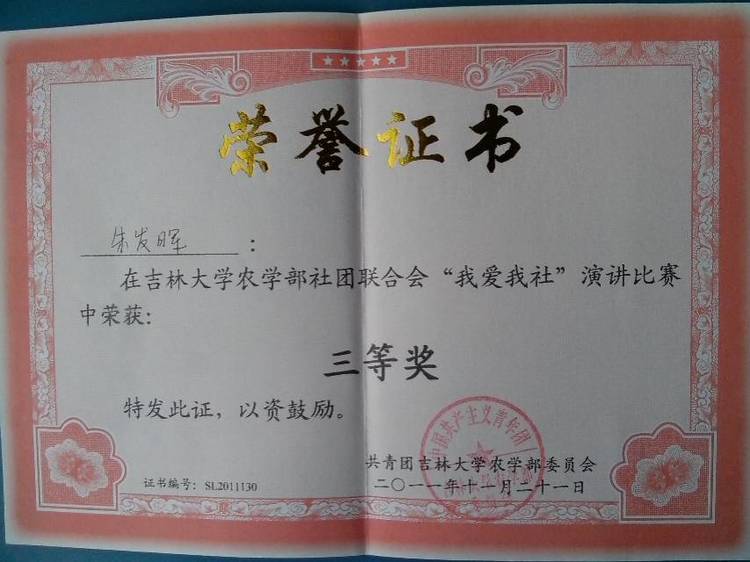 荣誉证书
朱发晖：
在吉林大学农学部社团联合会“我爱我社”演讲比赛
中荣获：
三等奖
特发此证，以资鼓励。
中国共产主义青年团
共青团吉林大学农学部委员会
证书编号：SL2011130
二〇一一年十一月二十一日